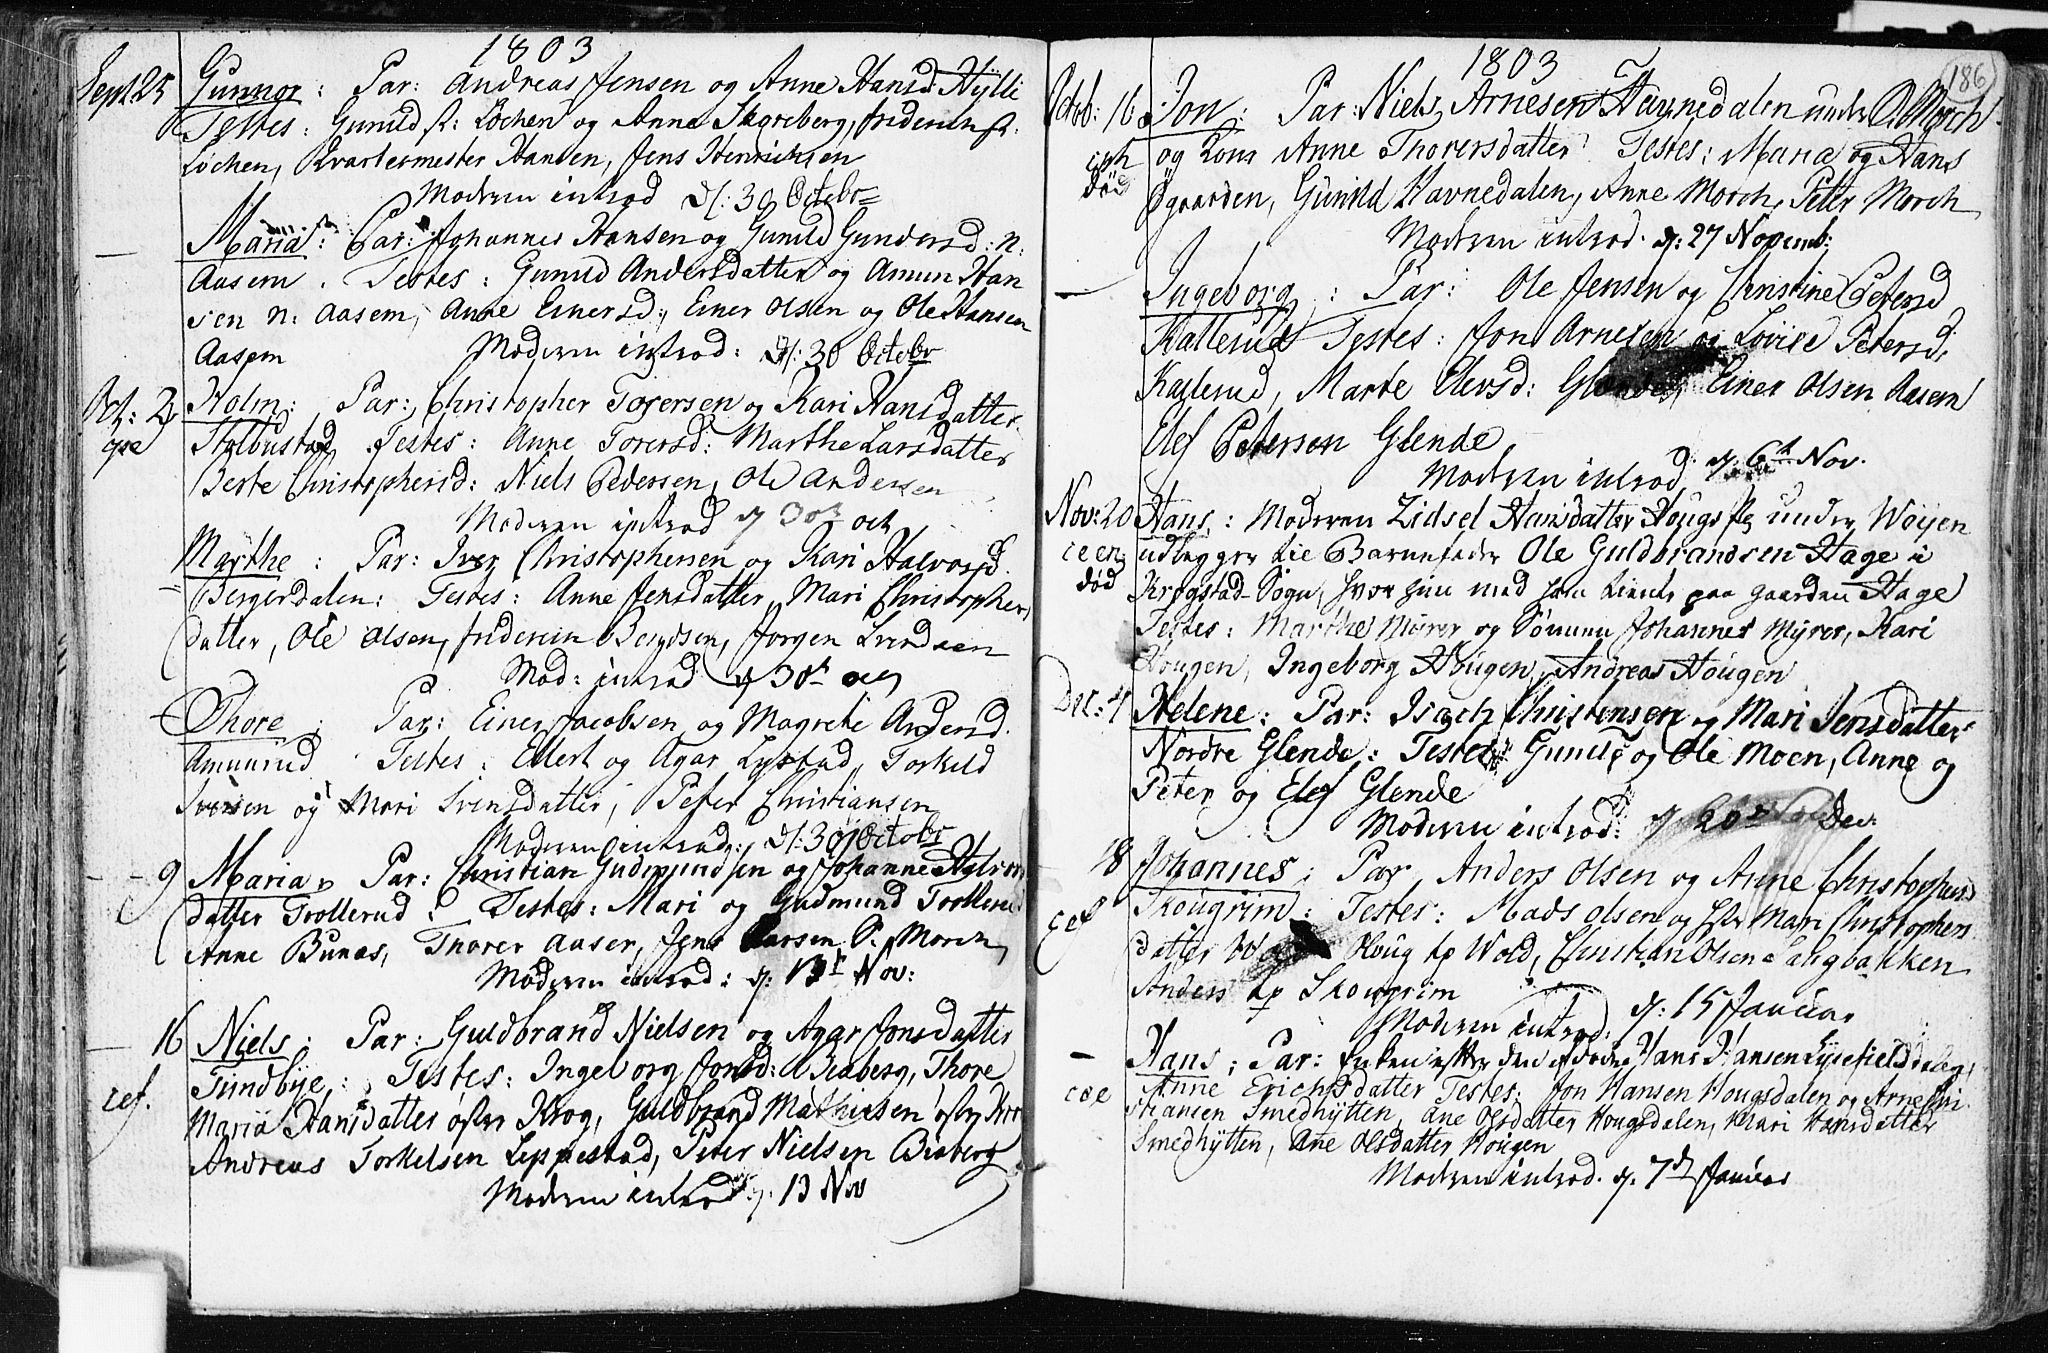 1803
Sept 25 Gunnor: Par: Andreas Jensen og Anne Hansd: Hylli
Testes: Gunild Løchen og Anne Skoreberg, friderich
Løchen, Kvartermester Hansen, Jens Henrichsen
Moderen introd d: 30 Octobr
— Maria: Par: Johannes Hansen og Gunild Gundersd: n:
Aasem. Testes: Gunild Andersdatter og Amun Han
sen n: Aasem, Anne Einersd:, Einer Olsen og Ole Hansen
Aasem Moderen introd: d: 30 Octobr
Oct: 2 Holm: Par: Christopher Torersen og Kari Hansdatter
Testes: Anne Torersd: Marthe Larsdatter
Berte Christophersd: Niels Pedersen, Ole Andersen
Moderen introd d 30 oct
Marthe: Par: Iver Christophersen og Kari Halvorsd.
Bergerdalen: Testes: Anne Jensdatter, Mari Christophers
datter, Ole Olsen, friderich Jørgen
Mod: introd d 30t oct
Thore: Par: Einer Jacobsen og Magrete Andersd.
Amunrud Testes: Edert og Agar Lystad, Torkild
Iversen og Mari Svensdatter, Peter Christiansen
Moderen introd: d: 30 Octobr
9 Maria: Par: Christian Gudmundsen og Johanne Halvors
datter Trollerud: Testes: Mari og Gudmund Trollerud
Anne Bunæs, Thorer Aaser, Jens Larsen S. Morch
Moderen introd: d: 13t Nov:
16 Niels: Par: Guldbrand Nielsen og Agar Jonsdatter
cef. Tundbye: Testes: Ingeborg Jonsd: Thore
Maria Hansdatter øfter Krog, Guldbrand Mathiesen øfter Kro
Andreas Torkelsen Leppestad, Peter Nielsen
Moderen introd d. 13 Nov
186
1803
Octob: 16 Jon: Par: Niels Arnesen Havnedalen under Ø. Morch
død og Kone Anne Thorersdatter Testes: Maria og Hans
Øgaarden, Gunild Havnedalen, Anne Morch, Peter Morch
Moderen introd. d: 27 Novemb:
— Ingeborg: Par: Ole Jensen og Christine Petersd
Katterud Testes: Jon Arnesen og Lovise Petersd,
Marte Elevsd: Glende, Einer Olsen Aasem
Elef Petersen Glende
Moderen introd d. 6t Nov.
Nov: 20 Hans: Moderen Zidsel Hansdatter Hougs under Woyen
død udlegger til Barnefader Ole Guldbrandsen Hage i
Krogstad Sogn, hvor hun med ham tiente paa gaarden Hage
Testes: Marthe Myrer og Johannes Myrer, Kari
Hougen, Ingeborg Hougen, Andreas Hougen
Dec: 4 Helene: Par: Isach Christensen og Mari Jensdatter
Nordre Glende: Testes: Gunild og Ole Moen, Anne og
Peter og Elef Glende
Moderen introd: d 26 Dec:
18 Johannes: Par Anders Olsen og Anne Christophersd
cef Skougrim: Testes: Mads Olsen og Mari Christophers
datter Woug Wold, Christian Olsen Langbakken
Anders Skougrim
Moderen introd: d: 15 Januar
— Hans: Par: Enken efter den afdøde Hans Hansen
Anne Erichsdatter Testes: Jon Hansen Hougsdalen og Arne Chri
stiansen Smedhytten, Ane Olsdatter Hougsdalen, Mari Hansdatter
Smedhytten, Ane Olsdatter Hougen
Moderen introd. d. 7d Januar